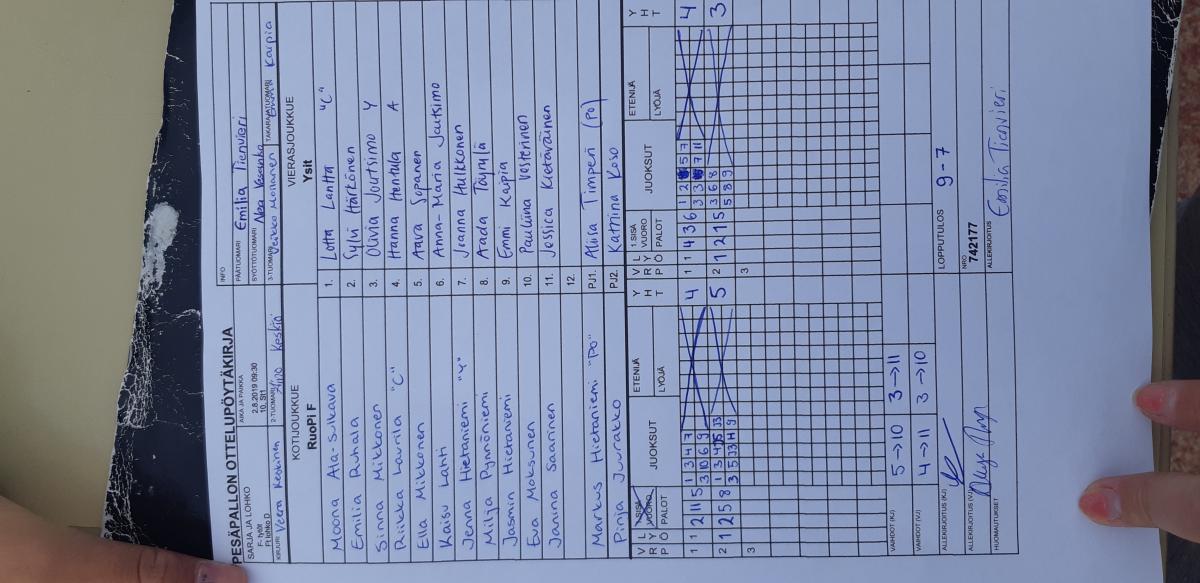 PESÄPALLON OTTELUPÖYTÄKIRJA
SARJA JA LOHKO
F- tytöt
Ft lohko D
AIKA JA PAIKKA
2.8.2019 09:30
10, St1
KIRJURI Veera Keskinen
2-TUOMARI Aino Keskiö
INFO
PÄÄTUOMARI Emilia Tienvieri
SYÖTTÖTUOMARI Nea
3-TUOMARI Veikko Moilanen
TAKARAJATUOMARI Karpia
KOTIJOUKKUE
RuoPi F
VIERASJOUKKUE
Ysit
Moona Ala-Sulkava
1. Lotta Lantta "C"
Emilia Ruhala
2. Sylvi Härkönen
Sinna Mikkonen
3. Olivia Joutsimo Y
Riikka Laurila "C"
4. Hanna Hentula A
Ella Mikkonen
5. Aava Sopanen
Kaisu Lahti
6. Anna-Maria Joutsimo
Jenna Hietaniemi "Y"
7. Jeanna Hulkkonen
Milja Pynnöniemi
8. Aada Täyrylä
Jasmin Hietaniemi
9. Emmi Karpia
Eva Moksunen
10. Pauliina Vesterinen
Janina Saarinen
11. Jessica Kietäväinen
12.
Markus Hietaniemi "PO"
PJ1. Aliisa Timperi (PO)
Pinja Juurakko
PJ2. Katriina Koso
V RP L YÖ 1.SISÄ VUORO PALOT JUOKSUT ETENIJÄ LYÖJÄ Y H T
V RP L YÖ 1.SISÄ VUORO PALOT JUOKSUT ETENIJÄ LYÖJÄ Y H T
1 1 2 11 5 1 3 4 7 4
3 10 6 9
1 1 4 3 6 1 2 5 7 4
3 3 7 11
2 1 2 5 8 1 3 4 5
3 5 9 5
2 1 2 1 5 3 6 8 3
5 8 9
3
3
VAIHDOT (KJ) 5→10 3→11
VAIHDOT (VJ) 4→11 3→10
ALLEKIRJOITUS (KJ)
LOPPUTULOS 9 - 7
ALLEKIRJOITUS (VJ)
NRO
742177
HUOMAUTUKSET
ALLEKIRJOITUS
Emilia Tienvieri